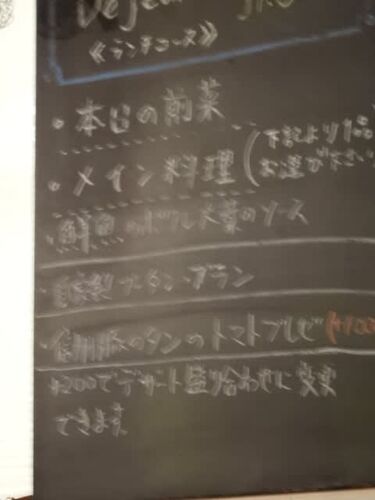 《ランチコース》
・本日の前菜
・メイン料理 (下記より1品
お選び下さい
・鮮魚のポワレ のソース
・自家製ブータンブラン
のタンのトマトブレゼ (+100
+200でデザート盛り合わせに変更
できます